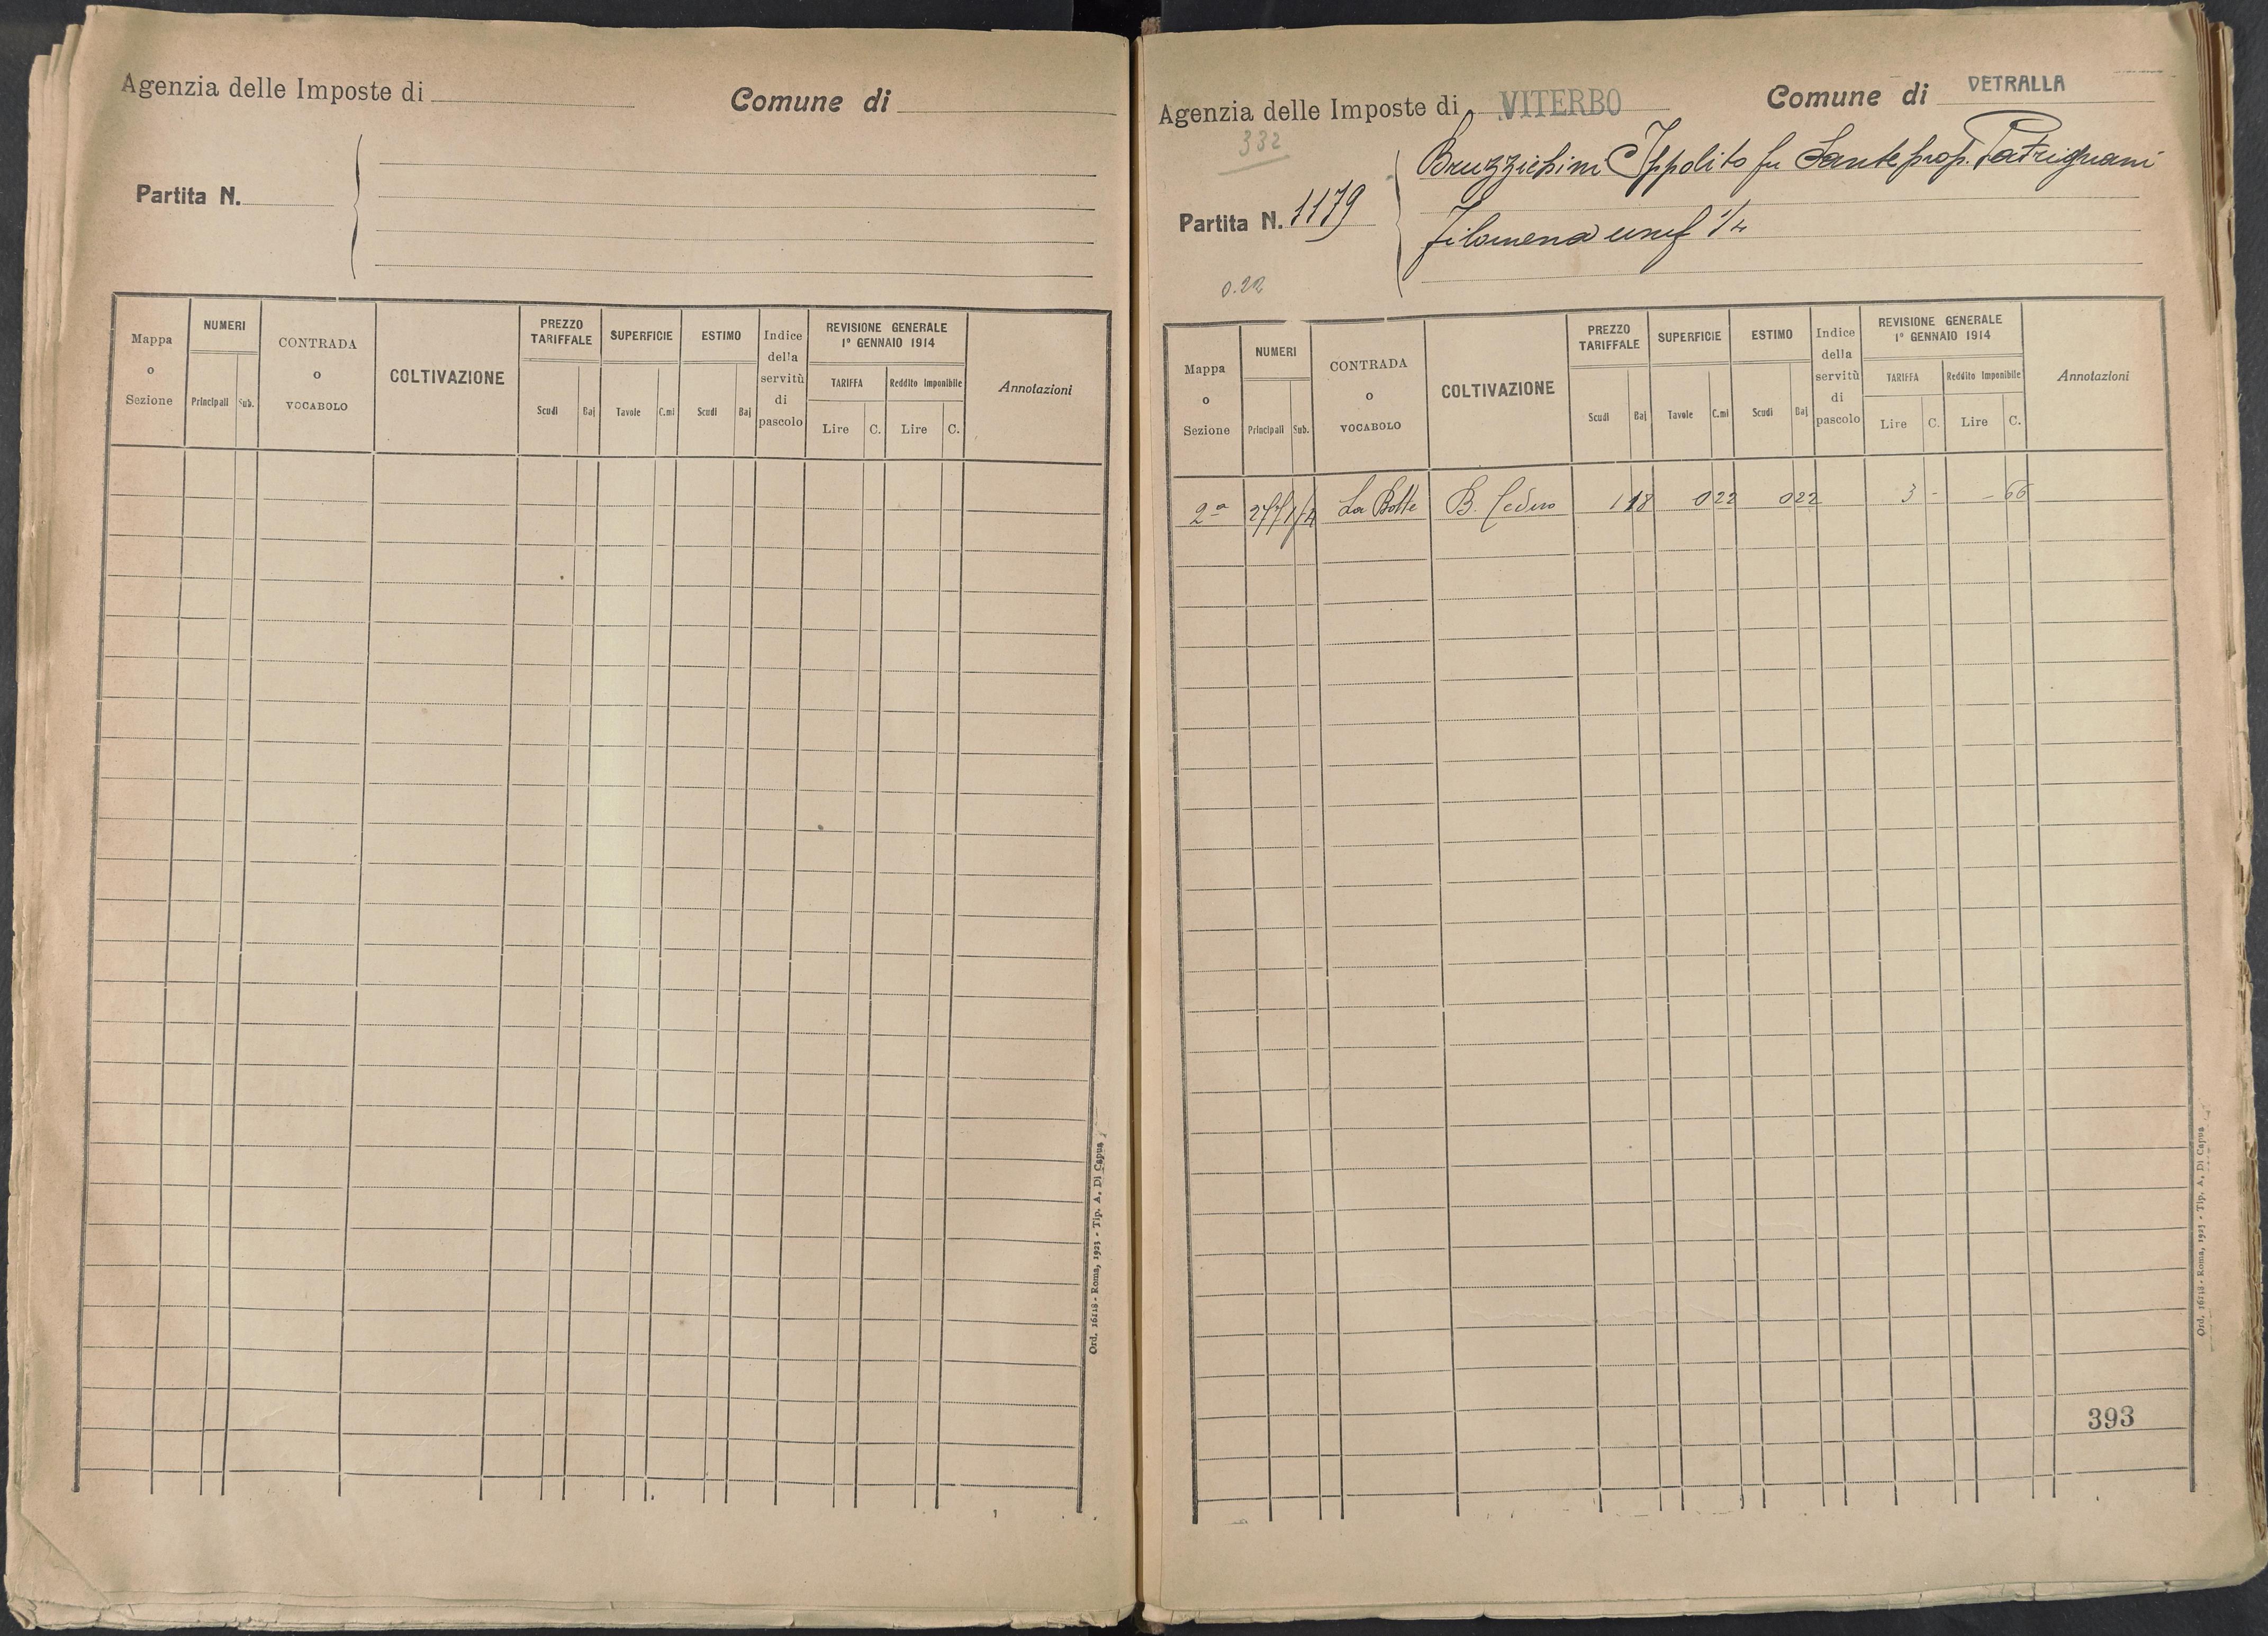 Agenzia delle Imposte di
Comune di
Partita N.
Mappa o Sezione
NUMERI
Principali
Sub.
CONTRADA o VOCABOLO
COLTIVAZIONE
PREZZO TARIFFALE
Scudi
Baj
SUPERFICIE
Tavole
C.mi
ESTIMO
Scudi
Baj
Indice della servitù di pascolo
REVISIONE GENERALE
1º GENNAIO 1914
TARIFFA
Lire
C.
Reddito Imponibile
Lire
C.
Annotazioni
Ord. 16118 - Roma, 1923 - Tip. A. Di Capua
Agenzia delle Imposte di VITERBO
Comune di VETRALLA
332
Partita N. 1179
Bruzzichini Ippolito fu Sante prop. Patrignani
Filomena usuf 1/4
0.22
Mappa o Sezione
NUMERI
Principali
Sub.
CONTRADA o VOCABOLO
COLTIVAZIONE
PREZZO TARIFFALE
Scudi
Baj
SUPERFICIE
Tavole
C.mi
ESTIMO
Scudi
Baj
Indice della servitù di pascolo
REVISIONE GENERALE
1º GENNAIO 1914
TARIFFA
Lire
C.
Reddito Imponibile
Lire
C.
Annotazioni
2ª La Botte B. Ceduo 1 18 0 22 0 22 3 - - 66
393
Ord. 16118 - Roma, 1923 - Tip. A. Di Capua